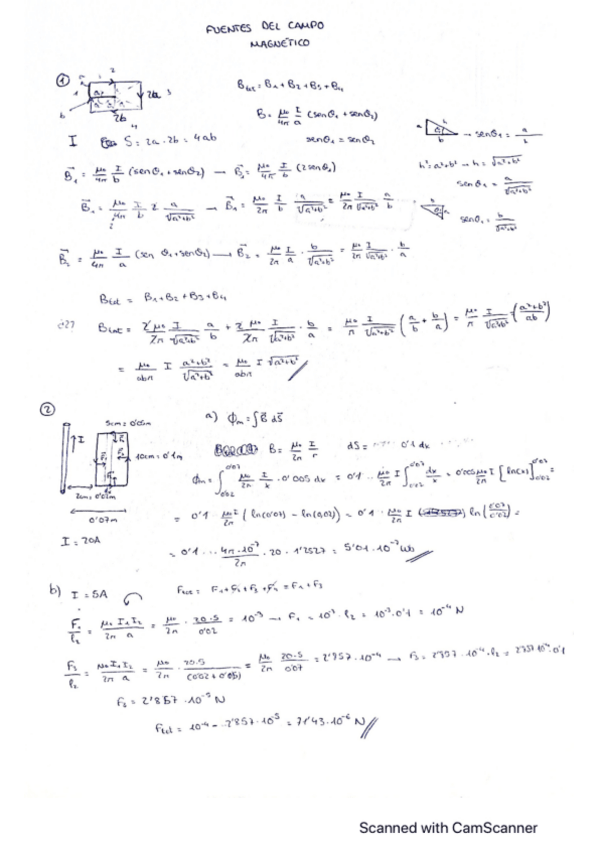 FUENTES DEL CAMPO
MAGNÉTICO
①
2a
2b
I S = 2a · 2b = 4ab
B_tot = B₁ + B₂ + B₃ + B₄
B = μ₀/4π I/a (senθ₁ + senθ₂)
senθ₁ = senθ₂
h² = a² + b² → h = √(a²+b²)
senθ₁ = a/√(a²+b²)
senθ₂ = b/√(a²+b²)
B₁ = μ₀/4π I/b (senθ₁ + senθ₂) → B₁ = μ₀/4π I/b (2senθ₁)
B₁ = μ₀/4π I/b 2 a/√(a²+b²) → B₁ = μ₀/2π I/b · a/√(a²+b²) = μ₀/2π I/√(a²+b²) a/b
B₂ = μ₀/4π I/a (sen θ₁ + senθ₂) → B₂ = μ₀/2π I/a · b/√(a²+b²) = μ₀/2π I/√(a²+b²) · b/a
B_tot = B₁ + B₂ + B₃ + B₄
B_tot = 2 μ₀/2π I/√(a²+b²) a/b + 2 μ₀/2π I/√(a²+b²) · b/a = μ₀/π I/√(a²+b²) (a/b + b/a) = μ₀/π I/√(a²+b²) (a²+b²/ab)
= μ₀/abπ I a²+b²/√(a²+b²) = μ₀/abπ I √(a²+b²)
②
5cm = 0'05m
I
10cm = 0'1m
2cm = 0'02m
0'07m
I = 20A
a) ϕm = ∫B dS
B = μ₀/2π I/r dS = 0'1 dx
= 0'1 · μ₀I/2π (ln(0'07) - ln(0,02)) = 0'1 · μ₀/2π I ln(0'07/0'02) =
= 0'1 · 4π·10⁻⁷/2π · 20 · 1'2527 = 5'01·10⁻⁷ Wb
b) I = 5A F_tot = F₁ + F₂ + F₃ + F₄ = F₁ + F₃
F₁/l₂ = μ₀ I₁ I₂/2π a = μ₀/2π · 20·5/0'02 = 10⁻³ → F₁ = 10⁻³ · l₂ = 10⁻³·0'1 = 10⁻⁴ N
F₃/l₂ = μ₀ I₁ I₂/2π a = μ₀/2π · 20·5/(0'02+0'05) = μ₀/2π 20·5/0'07 = 2'857·10⁻⁴ → F₃ = 2'857·10⁻⁴·l₂ = 2'857·10⁻⁴·0'1
F₃ = 2'857 · 10⁻⁵ N
F_tot = 10⁻⁴ - 2'857·10⁻⁵ = 71'43·10⁻⁶ N
Scanned with CamScanner